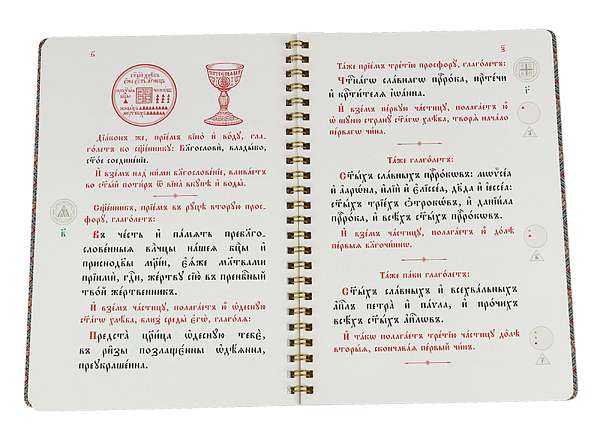 Діа́конъ же, прїе́мъ вїно̀ и҆ во́дꙋ, гла-
го́летъ ко сщ҃е́нникꙋ: Благословѝ, влады́ко,
ст҃о́е соедине́нїе.
И҆ взе́мъ над ни́ми благослове́нїе, влива́етъ
во ст҃ы́й поти́ръ ѿ вїна̀ вкꙋ́пѣ и҆ воды̀.
Сщ҃е́нникъ, прїе́мъ въ рꙋ́цѣ вторꙋ́ю прос-
форꙋ̀, глаго́летъ:
Въ че́сть и҆ па́мять пребл҃го-
слове́нныѧ влⷣчцы на́шеѧ бцⷣы и҆
приснодв҃ы мр҃і́и, є҆ѧ́же мл҃твами
прїимѝ, гдⷭ҇и, же́ртвꙋ сїю̀ въ пренбⷭ҇ный
тво́й же́ртвенникъ.
И҆ взе́мъ части́цꙋ, полага́етъ ю҆̀ ѡ҆деснꙋ́ю
ст҃а́гѡ хлѣ́ба, близ̾ среды̀ є҆гѡ̀, глаго́лѧ:
Предста̀ цр҃и́ца ѡ҆деснꙋ́ю тебє̀,
въ ри̑зы позлаще́нны ѡ҆дѣ́ѧнна,
преꙋкра́шенна.
Та́же прїе́мъ тре́тїю просфорꙋ̀, глаго́летъ:
Чⷭ҇тна́гѡ сла́внагѡ прⷪ҇ро́ка, прⷣте́чи
и҆ крⷭ҇ти́телѧ і҆ѡа́нна.
И҆ взе́мъ пе́рвꙋю части́цꙋ, полага́етъ ю҆̀
ѡ҆ шꙋ́юю странꙋ̀ ст҃а́гѡ хлѣ́ба, творѧ̀ нача́ло
пе́рвагѡ чи́на.
Та́же глаго́летъ:
Ст҃ы́хъ сла́вныхъ прⷪ҇ро́кѡвъ: мѡѷсе́а
и҆ а҆арѡ́на, и҆лїѝ и҆ є҆лїссе́а, дв҃да и҆ і҆ессе́а:
ст҃ы́хъ трїе́хъ ѻ҆́трокѡвъ, и҆ данїи́ла
прⷪ҇ро́ка, и҆ всѣ́хъ ст҃ы́хъ прⷪ҇ро́кѡвъ.
И҆ взе́мъ части́цꙋ, полага́етъ ю҆̀ до́лѣ
пе́рвыѧ бл҃гочи́ннѡ.
Та́же па́ки глаго́летъ:
Ст҃ы́хъ сла́вныхъ и҆ всехва́льныхъ
а҆пⷭ҇лъ петра̀ и҆ па́ѵла, и҆ про́чихъ
всѣ́хъ ст҃ы́хъ а҆пⷭ҇лѡвъ.
И҆ та́кѡ полага́етъ тре́тїю части́цꙋ до́лѣ
вторы́ѧ, сконча́ваѧ пе́рвый чи́нъ.